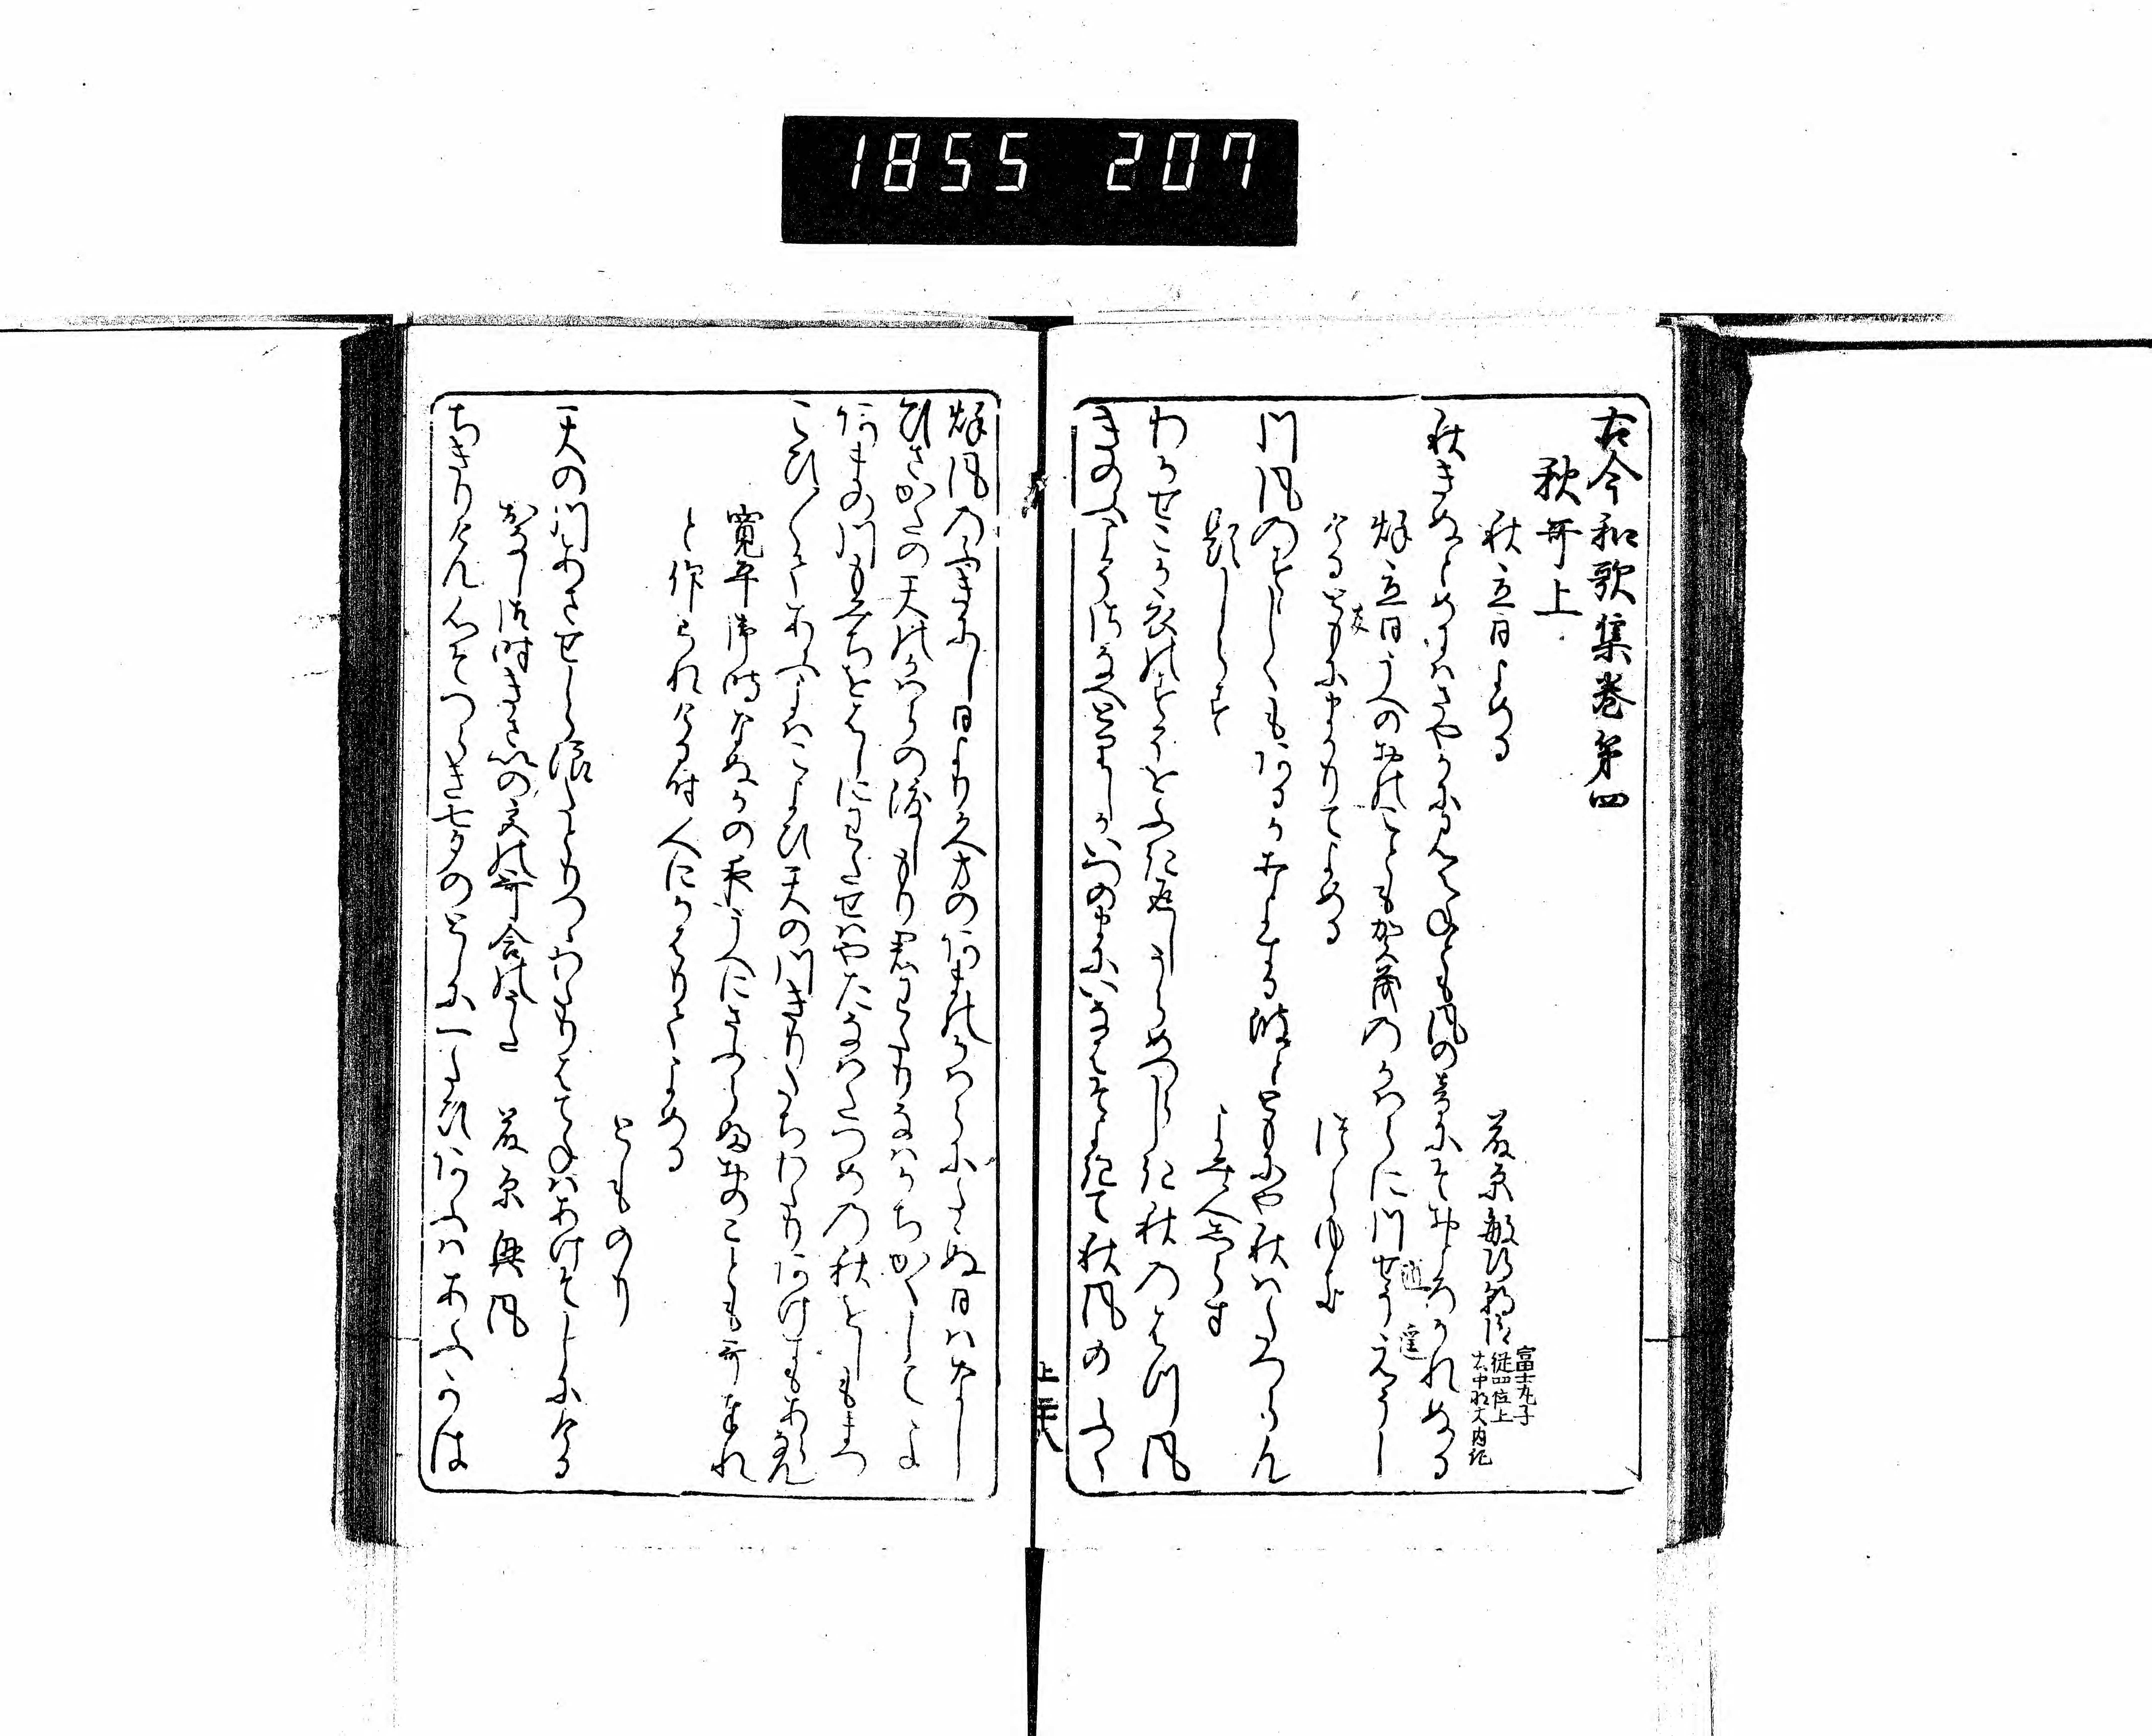 1855 207
古今和歌集巻第四
秋哥上
秋立日よめる
藤原敏行朝臣
富士丸子
従四位上
右中将大内記
秋きぬとめにはさやかにみえねとも風の音にそおとろかれぬる
秌立日うへのおのことも加茂のかはらに川せうえうし
逍 遥
けるともにまかりてよめる
友
つらゆき
川風のすゝしくもあるかうちよする波とともにや秋はたつらん
題しらす
よみ人しらす
わかせこか衣のすそをふき返しうらめつらしき秋のはつ風
きのふこそさなへとりしかいつのまにいなはそよきて秋風のふく
上 三十八
秌風のふきにし日より久方のあまのかはらにたゝぬ日はなし
ひさかたの天のかはらの渡しもり君わたりなはかちかくしてよ
あまの川もみちをはしにわたせはやたなはたつめの秋をしもまつ
こひ〳〵てあふよはこよひ天の川きりたちわたりあけすもあらなん
寛平御時なぬかの夜うへにさふらふおのことも哥奉れ
と仰られける時人にかはりてよめる
とものり
天の川あさせしら浪たとりつゝわたりはてねはあけそしにける
おなし御時きさいの宮の哥合のうた
藤原興風
ちきりけん心そつらき七夕のとしに一たひあふはあふかは